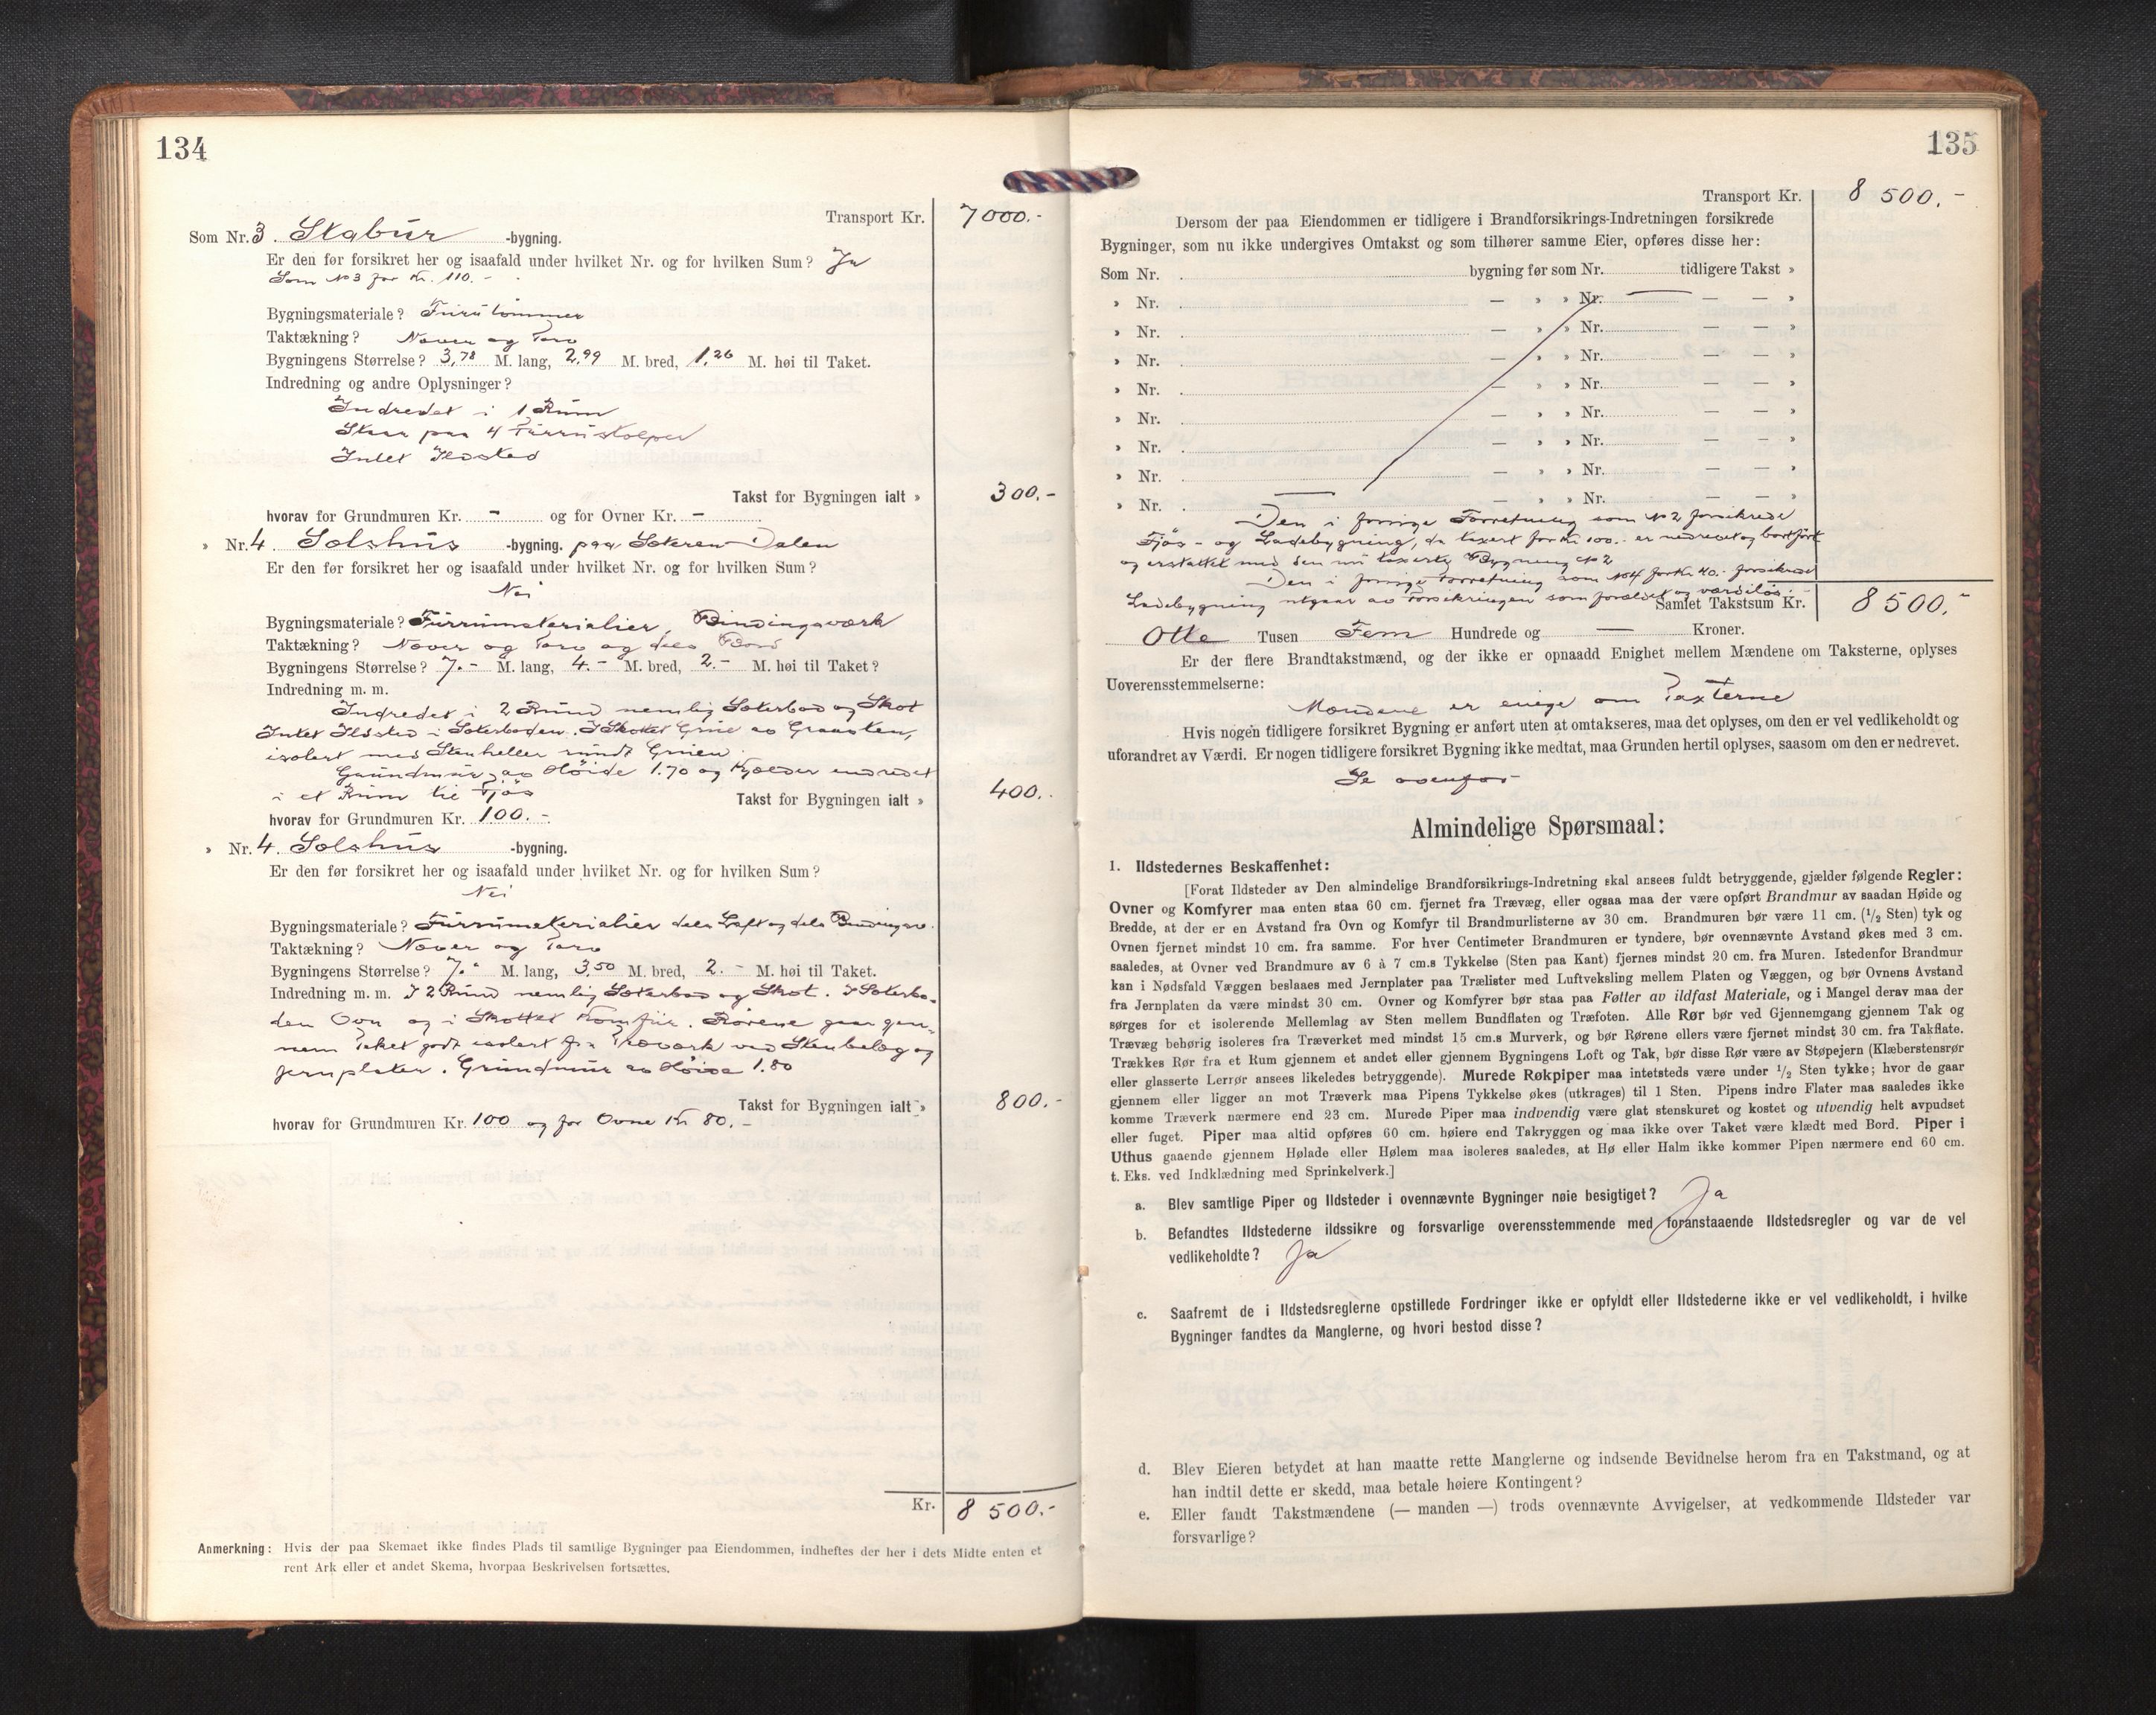 134
Transport Kr. 7000.-
Som Nr. 3. Stabur -bygning.
Er den før forsikret her og isaafald under hvilket Nr. og for hvilken Sum? Ja
Som No 3 for Kr. 110.-
Bygningsmateriale? Furutømmer
Taktækning? Næver og Torv
Bygningens Størrelse? 3,78 M. lang, 2,99 M. bred, 1,26 M. høi til Taket.
Indredning og andre Oplysninger?
Indredet i 1 Rum
Staar paa 4 Furustolper
Intet Ildsted
Takst for Bygningen ialt » 300.-
hvorav for Grundmuren Kr. - og for Ovner Kr. -
» Nr. 4. Selshus -bygning. paa Sæteren Dalen
Er den før forsikret her og isaafald under hvilket Nr. og for hvilken Sum?
Nei
Bygningsmateriale? Furumaterialier, Bindingsværk
Taktækning? Næver og Torv og dels Bord
Bygningens Størrelse? 7.- M. lang, 4.- M. bred, 2.- M. høi til Taket?
Indredning m. m.
Indredet i 2 Rum nemlig Sæterbod og Skot
Intet Ildsted i Sæterboden. I Skottet Grue av Graasten,
isolert med Stenheller rundt Gruen.
Grundmur av Høide 1.70 og Kjælder indredet
i et Rum til Fjøs
Takst for Bygningen ialt » 400.-
hvorav for Grundmuren Kr. 100.-
» Nr. 4. Selshus -bygning.
Er den før forsikret her og isaafald under hvilket Nr. og for hvilken Sum?
Nei
Bygningsmateriale? Furumaterialier dels Laft og dels Bindingsv.
Taktækning? Næver og Torv
Bygningens Størrelse? 7.- M. lang, 3,50 M. bred, 2.- M. høi til Taket.
Indredning m. m. I 2 Rum nemlig Sæterbod og Skot. I Sæterbo-
den Ovn og i Skottet Komfur. Rørene gaar gjen-
nem Taket godt isolert fra Træværk ved Stenbelæg og
jernplater. Grundmur av Høide 1.80
Takst for Bygningen ialt » 800.-
hvorav for Grundmuren Kr. 100 og for Ovne Kr 80.-
Kr. 8 500.-
Anmerkning: Hvis der paa Skemaet ikke findes Plads til samtlige Bygninger paa Eiendommen, indheftes der her i dets Midte enten et
rent Ark eller et andet Skema, hvorpaa Beskrivelsen fortsættes.
135
Transport Kr. 8 500.-
Dersom der paa Eiendommen er tidligere i Brandforsikrings-Indretningen forsikrede
Bygninger, som nu ikke undergives Omtakst og som tilhører samme Eier, opføres disse her:
Som Nr. bygning før som Nr. tidligere Takst »
» Nr. — » » Nr. — — »
» Nr. — » » Nr. — — »
» Nr. — » » Nr. — — »
» Nr. — » » Nr. — — »
» Nr. — » » Nr. — — »
» Nr. — » » Nr. — — »
» Nr. — » » Nr. — — »
» Nr. — » » Nr. — — »
Den i forrige Forretning som No 2 forsikrede
Fjøs- og Ladebygning, da taxert for Kr 100.- er nedrevet og bortført
og erstattet med den nu taxerte Bygning No 2
Den i forrige Forretning som No 4 for Kr 40.- forsikrede
Ladebygning utgaar av Forsikringen som forældet og værdiløs.
Samlet Takstsum Kr. 8500.-
Otte Tusen Fem Hundrede og — Kroner.
Er der flere Brandtakstmænd, og der ikke er opnaadd Enighet mellem Mændene om Taksterne, oplyses
Uoverensstemmelserne:
Mændene er enige om Taxterne
Hvis nogen tidligere forsikret Bygning er anført uten at omtakseres, maa det oplyses, om den er vel vedlikeholdt og
uforandret av Værdi. Er nogen tidligere forsikret Bygning ikke medtat, maa Grunden hertil oplyses, saasom om den er nedrevet.
Se ovenfor
Almindelige Spørsmaal:
1. Ildstedernes Beskaffenhet:
[Forat Ildsteder av Den almindelige Brandforsikrings-Indretning skal ansees fuldt betryggende, gjælder følgende Regler:
Ovner og Komfyrer maa enten staa 60 cm. fjernet fra Trævæg, eller ogsaa maa der være opført Brandmur av saadan Høide og
Bredde, at der er en Avstand fra Ovn og Komfyr til Brandmurlisterne av 30 cm. Brandmuren bør være 11 cm. (1/2 Sten) tyk og
Ovnen fjernet mindst 10 cm. fra samme. For hver Centimeter Brandmuren er tyndere, bør ovennævnte Avstand økes med 3 cm.
saaledes, at Ovner ved Brandmure av 6 à 7 cm.s Tykkelse (Sten paa Kant) fjernes mindst 20 cm. fra Muren. Istedenfor Brandmur
kan i Nødsfald Væggen beslaaes med Jernplater paa Trælister med Luftveksling mellem Platen og Væggen, og bør Ovnens Avstand
fra Jernplaten da være mindst 30 cm. Ovner og Komfyrer bør staa paa Føtter av ildfast Materiale, og i Mangel derav maa der
sørges for et isolerende Mellemlag av Sten mellem Bundflaten og Træfoten. Alle Rør bør ved Gjennemgang gjennem Tak og
Trævæg behørig isoleres fra Træverket med mindst 15 cm.s Murverk, og bør Rørene ellers være fjernet mindst 30 cm. fra Takflate.
Trækkes Rør fra et Rum gjennem et andet eller gjennem Bygningens Loft og Tak, bør disse Rør være av Støpejern (Klæberstensrør
eller glasserte Lerrør ansees likeledes betryggende). Murede Røkpiper maa intetsteds være under 1/2 Sten tykke; hvor de gaar
gjennem eller ligger an mot Træverk maa Pipens Tykkelse økes (utkrages) til 1 Sten. Pipens indre Flater maa saaledes ikke
komme Træverk nærmere end 23 cm. Murede Piper maa indvendig være glat stenskuret og kostet og utvendig helt avpudset
eller fuget. Piper maa altid opføres 60 cm. høiere end Takryggen og maa ikke over Taket være klædt med Bord. Piper i
Uthus gaaende gjennem Hølade eller Hølem maa isoleres saaledes, at Hø eller Halm ikke kommer Pipen nærmere end 60 cm.
t. Eks. ved Indklædning med Sprinkelverk.]
a. Blev samtlige Piper og Ildsteder i ovennævnte Bygninger nøie besigtiget? Ja
b. Befandtes Ildstederne ildssikre og forsvarlige overensstemmende med foranstaaende Ildstedsregler og var de vel
vedlikeholdte? Ja
c. Saafremt de i Ildstedsreglerne opstillede Fordringer ikke er opfyldt eller Ildstederne ikke er vel vedlikeholdt, i hvilke
Bygninger fandtes da Manglerne, og hvori bestod disse?
d. Blev Eieren betydet at han maatte rette Manglerne og indsende Bevidnelse herom fra en Takstmand, og at
han indtil dette er skedd, maa betale høiere Kontingent?
e. Eller fandt Takstmændene (— manden —) trods ovennævnte Avvigelser, at vedkommende Ildsteder var
forsvarlige?